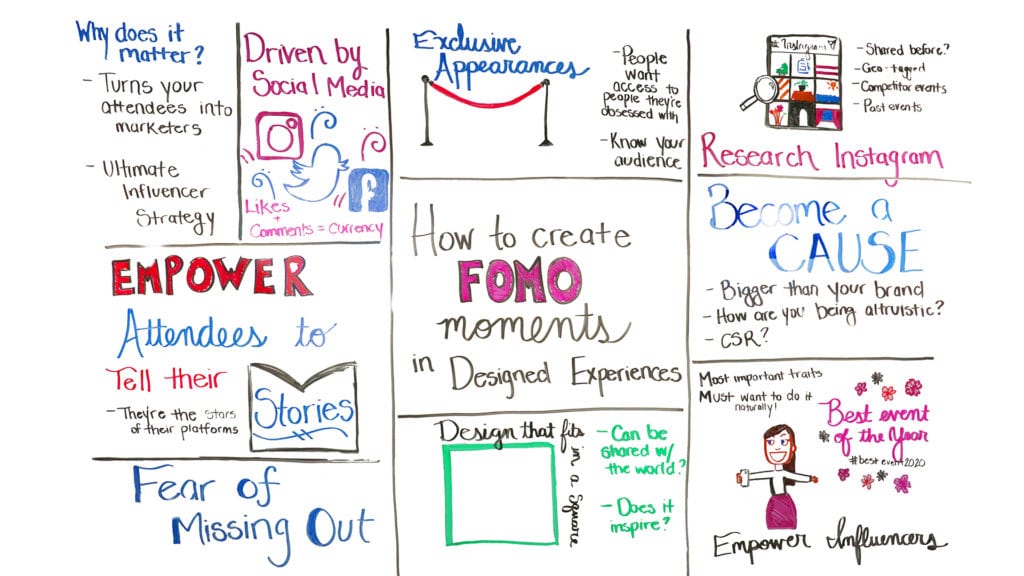 Why does it
matter?
- Turns your
attendees into
marketers
- Ultimate
Influencer
Strategy
Driven by
Social Media
Likes
+
Comments = Currency
EMPOWER
Attendees to
Tell their
Stories
- They're the stars
of their platforms
Fear of
Missing Out
Exclusive
Appearances
- People
want
access to
people they're
obsessed with
- Know your
audience
How to create
FOMO
moments
in Designed Experiences
Design that fits
in a Square
- Can be
shared w/
the world?
- Does it
inspire?
Instagram
- Shared before?
- Geo-tagged
- Competitor events
- Past events
Research Instagram
Become a
CAUSE
- Bigger than your brand
- How are you being altruistic?
- CSR?
Most important traits
Must want to do it
naturally!
Best event
of the Year
#bestevent2020
Empower Influencers